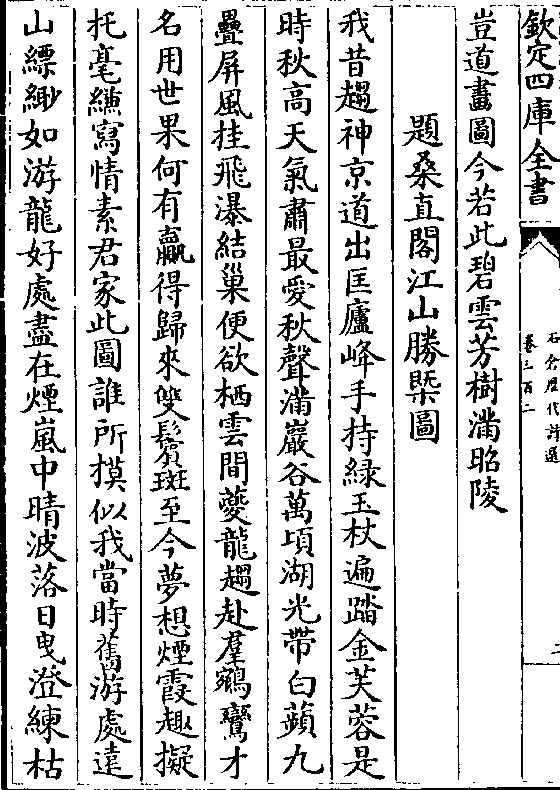 欽定四庫全書
石倉歷代詩選
卷三百二
豈道畫圖今若此碧雲芳樹滿昭陵
題桑直閣江山勝槩圖
我昔趨神京道出匡廬峰手持綠玉杖遍踏金芙蓉是
時秋高天氣肅最愛秋聲滿巖谷萬頃湖光帶白蘋九
疊屏風挂飛瀑結巢便欲栖雲間夔龍趨赴羣鵷鸞才
名用世果何有贏得歸來雙鬢斑至今夢想煙霞趣擬
托毫縑寫情素君家此圖誰所摸似我當時舊游處遠
山縹緲如游龍好處盡在煙嵐中晴波落日曳澄練枯